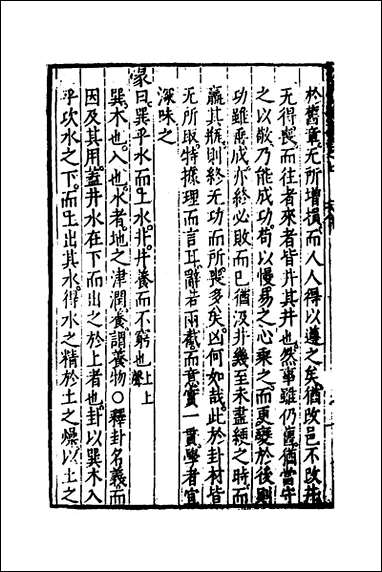 於舊章无所增損而人人得以遵之矣猶改邑不改井
无得喪而往者來者皆井其井也然事雖仍舊猶當守
之以敬乃能成功苟以慢易之心乘之而更變於後則
功雖垂成亦終必敗而已猶汲井幾至未盡綆之時而
羸其瓶則終无功而所喪多矣凶何如哉此於卦材皆
无所取特據理而言耳辭若兩截而意實一貫學者宜
深味之
彖曰巽乎水而上水井井養而不窮也上上聲
巽木也入也水者地之津潤養謂養物○釋卦名義而
因及其用蓋井水在下而出之於上者也卦以巽木入
乎坎水之下而上出其水得水之精於土之燥以土之